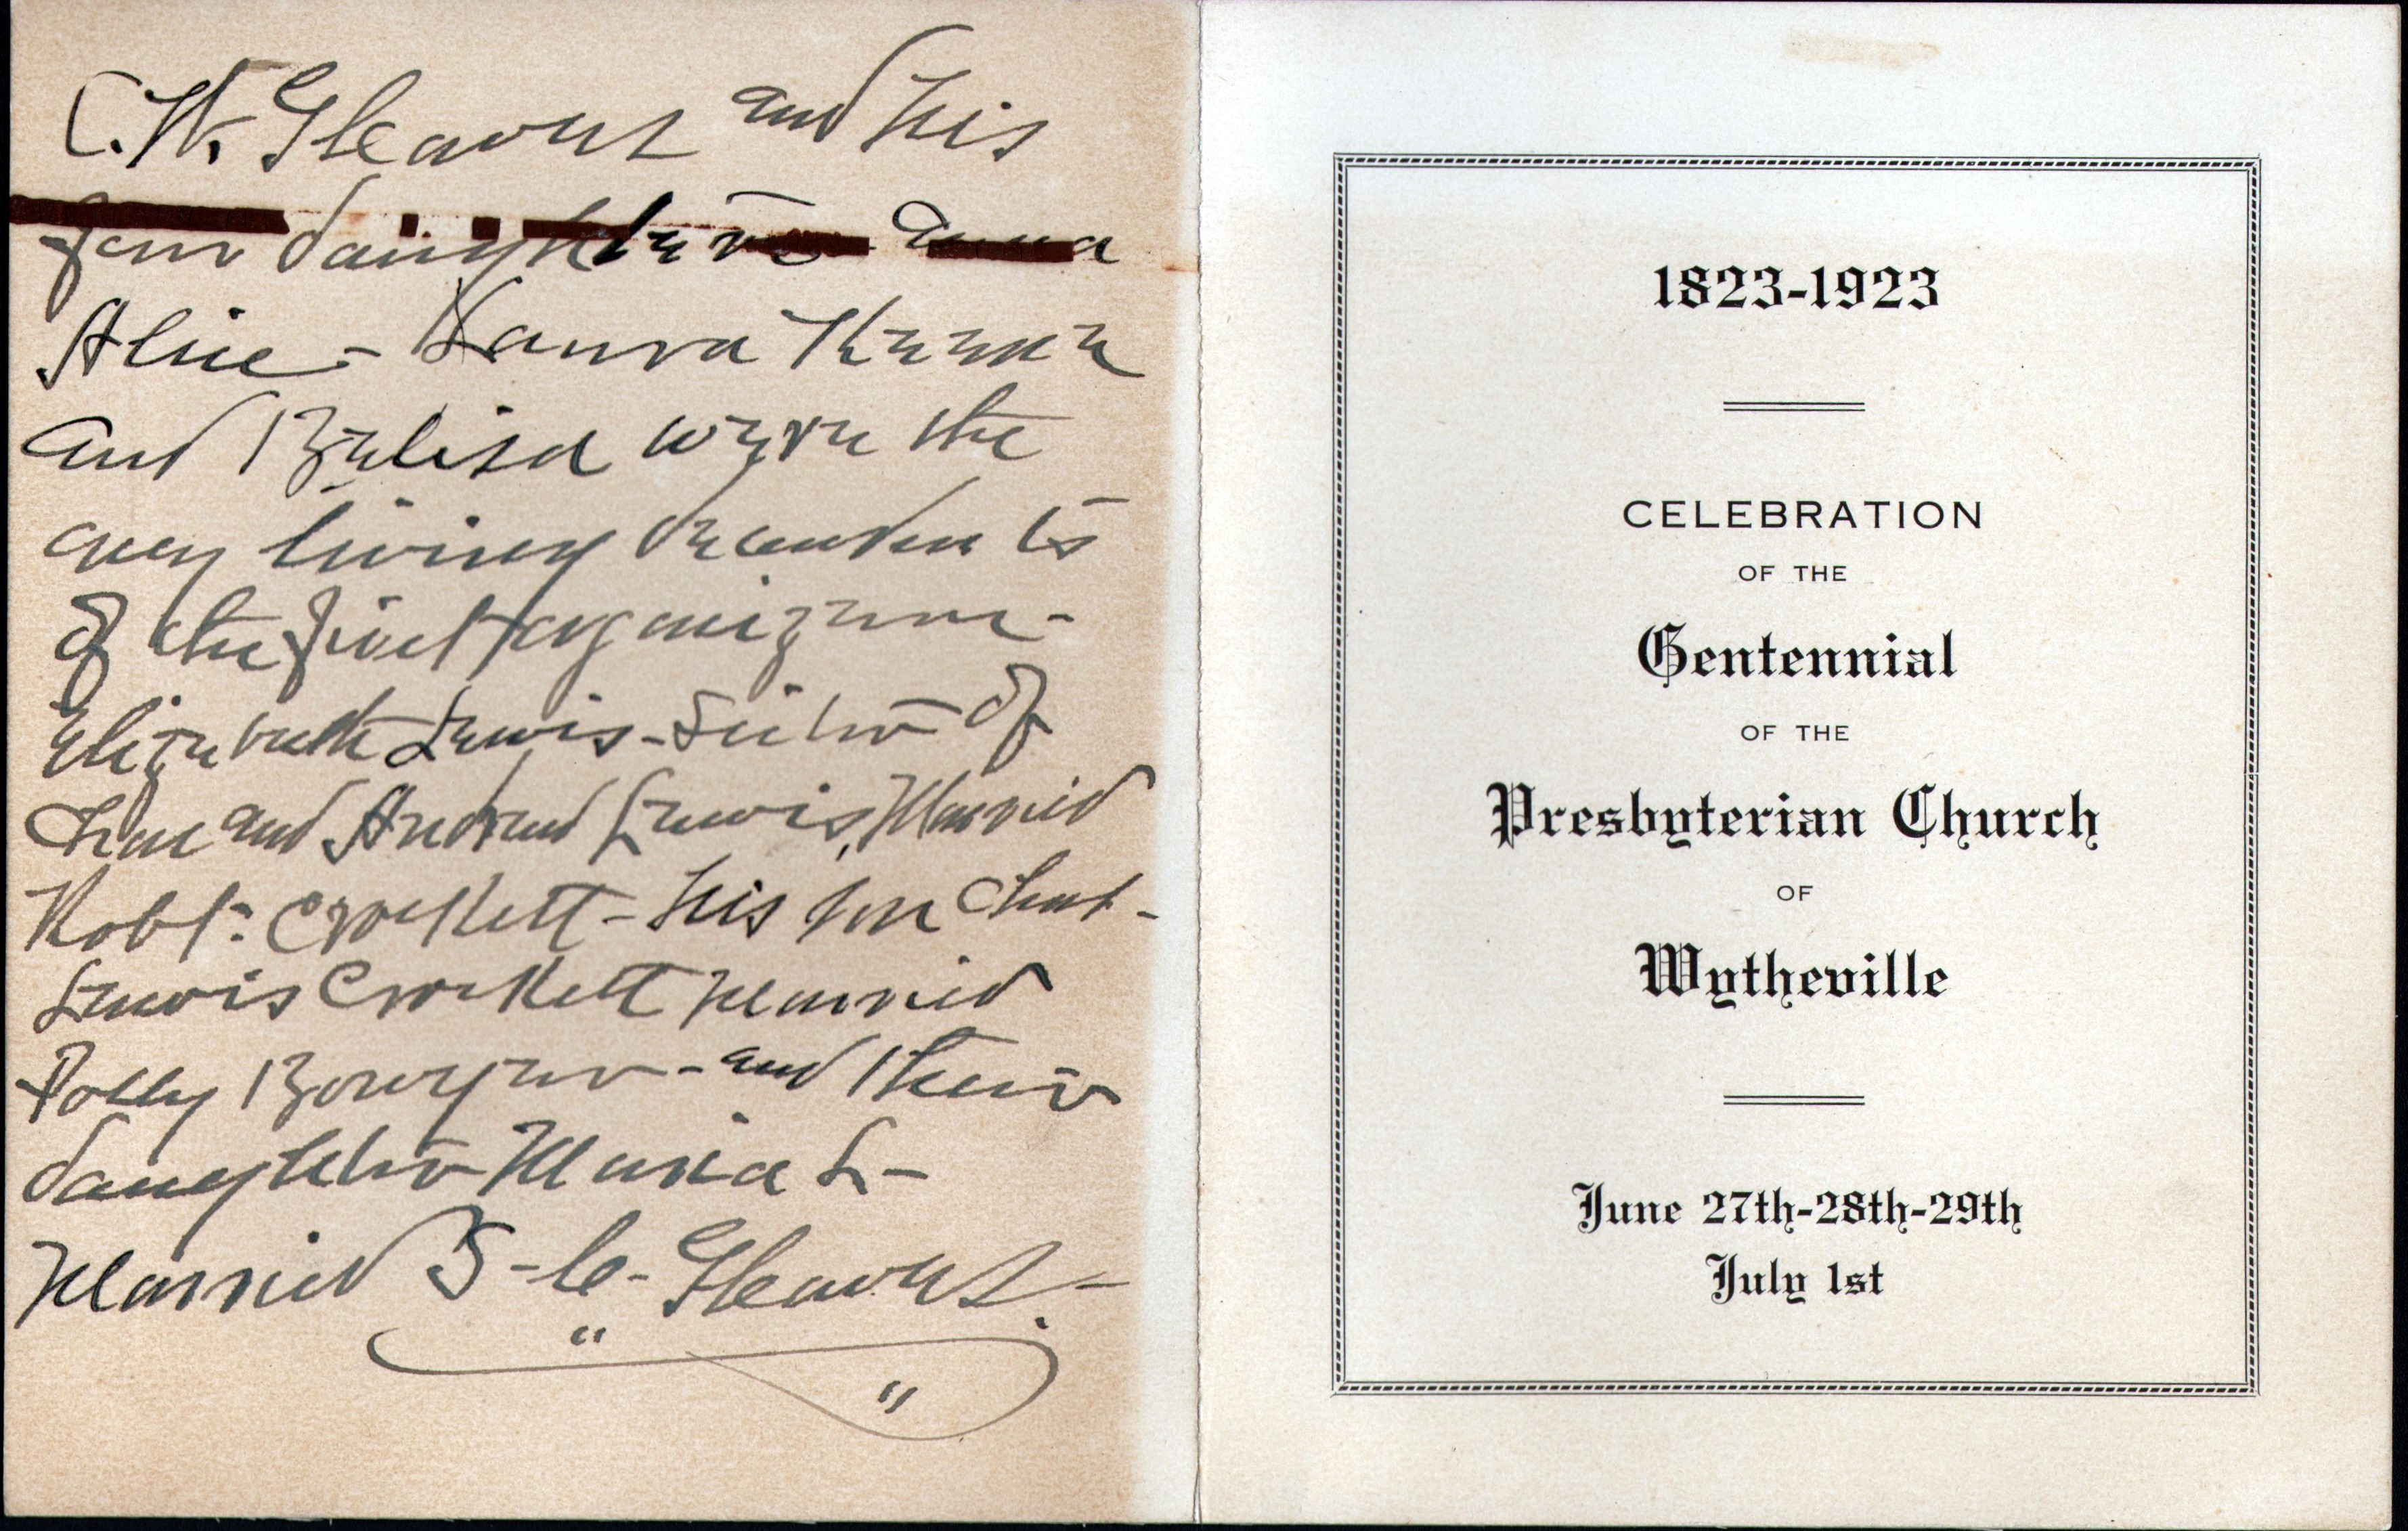 C. W. Gleaves and his
four daughters - Anna
Alice - Laura Kemme
and Belisa were the
only living decendents
of the first organizers -
Elizabeth Lewis - Sister of
Chas and Andrew Lewis, Married
Robt. Crockett - his son Chas -
Lewis Crockett Married
Polly Bowyer - and their
daughter Maria L -
Married S - C - Gleaves -
1823-1923
CELEBRATION
OF THE
Centennial
OF THE
Presbyterian Church
OF
Wytheville
June 27th-28th-29th
July 1st